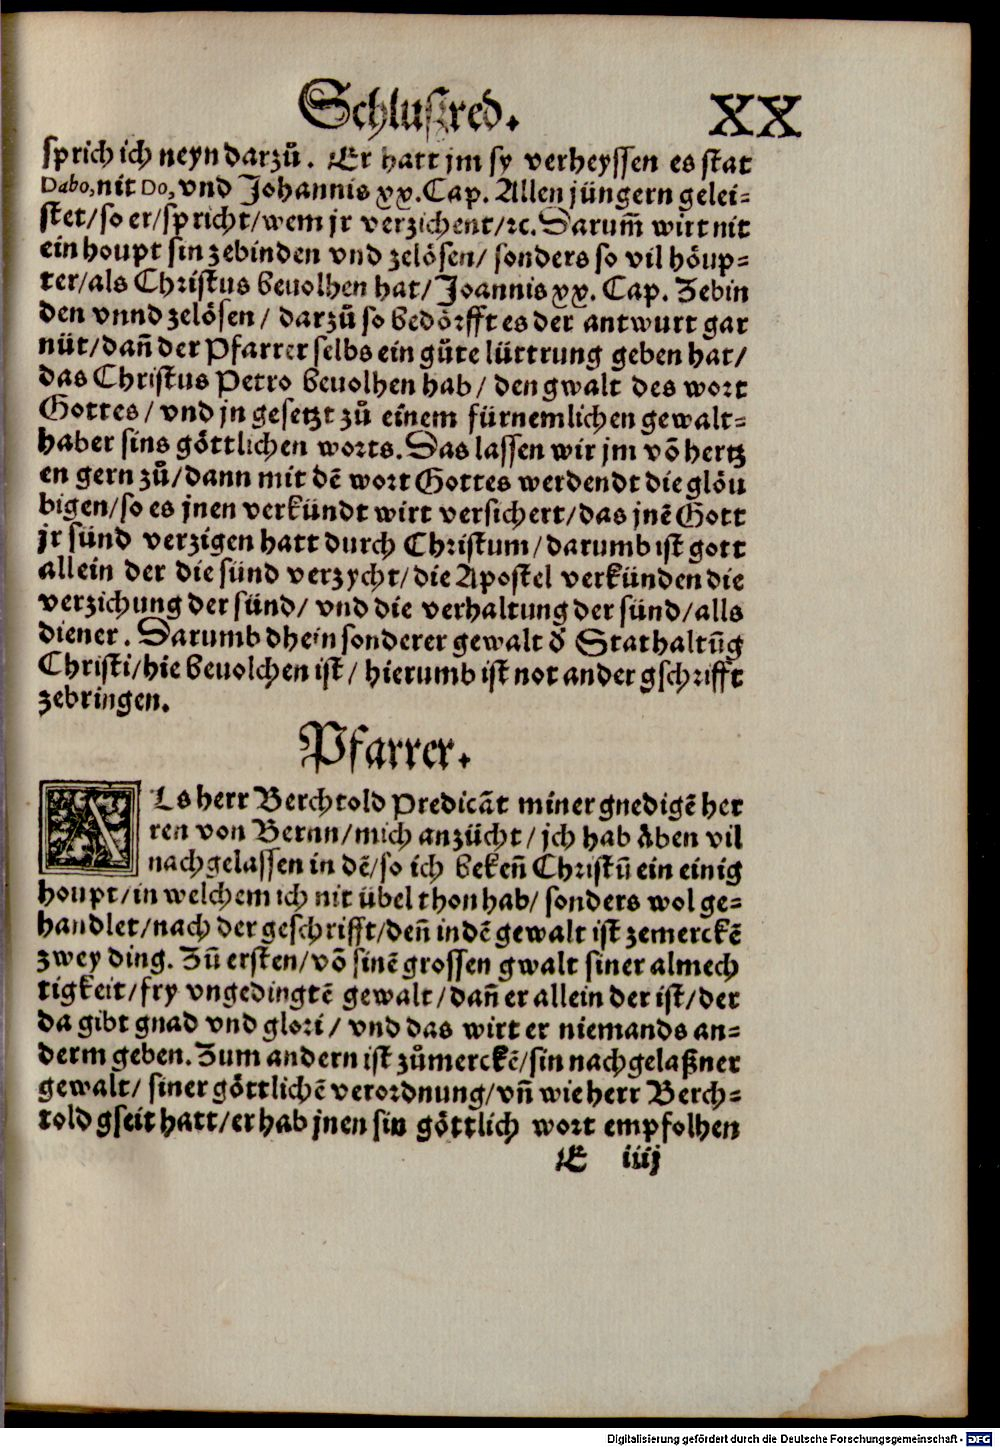 Schlußred. XX
sprich ich neyn darzů. Er hatt jm sy verheyssen es stat
Dabo, nit Do, vnd Johannis xx. Cap. Allen jüngern gelei-
stet/so er/spricht/wem jr verzichent/ꝛc. Darum̃ wirt nit
ein houpt sin zebinden vnd zelösen/ sonders so vil höup-
ter/als Christus beuolhen hat/ Joannis xx. Cap. Zebin
den vnnd zelösen/ darzů so bedörfft es der antwurt gar
nüt/dañ der Pfarrer selbs ein gůte lüttrung geben hat/
das Christus Petro beuolhen hab/ den gwalt des wort
Gottes/ vnd jn gesetzt zů einem fürnemlichen gewalt-
haber sins göttlichen worts. Das lassen wir jm võ hertz
en gern zů/dann mit dẽ wort Gottes werdendt die glöu
bigen/so es jnen verkündt wirt versichert/das jnẽ Gott
jr sünd verzigen hatt durch Christum/darumb ist gott
allein der die sünd verzycht/die Apostel verkünden die
verzichung der sünd/ vnd die verhaltung der sünd/alls
diener. Darumb dhein sonderer gewalt d̃ Stathaltũg
Christi/hie beuolchen ist/ hierumb ist not ander gschrifft
zebringen.
Pfarrer.
ALs herr Berchtold Predicãt miner gnedigẽ her
ren von Bernn/mich anzücht/jch hab åben vil
nachgelassen in dẽ/so ich bekeñ Christũ ein einig
houpt/in welchem ich nit übel thon hab/ sonders wol ge-
handlet/nach der geschrifft/deñ in dẽ gewalt ist zemerckẽ
zwey ding. Zũ ersten/võ sinẽ grossen gwalt siner almech
tigkeit/fry vngedingtẽ gewalt/dañ er allein der ist/der
da gibt gnad vnd glori/ vnd das wirt er niemands an-
derm geben. Zum andern ist zůmerckẽ/sin nachgelaßner
gewalt/ siner göttlichẽ verordnung/vñ wie herr Berch-
told gseit hatt/er hab jnen sin göttlich wort empfolhen
E iiij
Digitalisierung gefördert durch die Deutsche Forschungsgemeinschaft - DFG